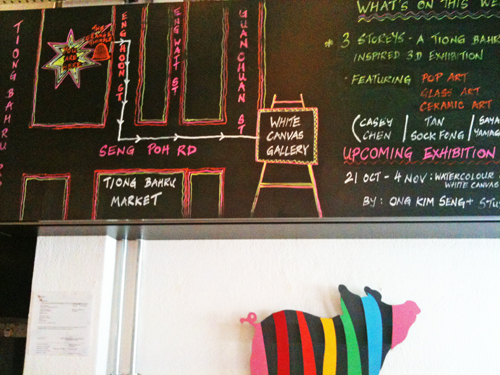 TIONG BAHRU RD
YOU ARE HERE
ENG HOON ST
ENG WATT ST
GUAN CHUAN ST
SENG POH RD
WHITE
CANVAS
GALLERY
TIONG BAHRU
MARKET
WHAT'S ON THIS WE
* 3 STOREYS - A TIONG BAHRU
INSPIRED 3D EXHIBITION
• FEATURING POP ART
GLASS ART
CERAMIC ART
(CASEY CHEN / TAN SOCK FONG / SAYA YAMAG
UPCOMING EXHIBITION
21 OCT - 4 NOV: WATERCOLOUR
WHITE CANVAS
BY: ONG KIM SENG + STU